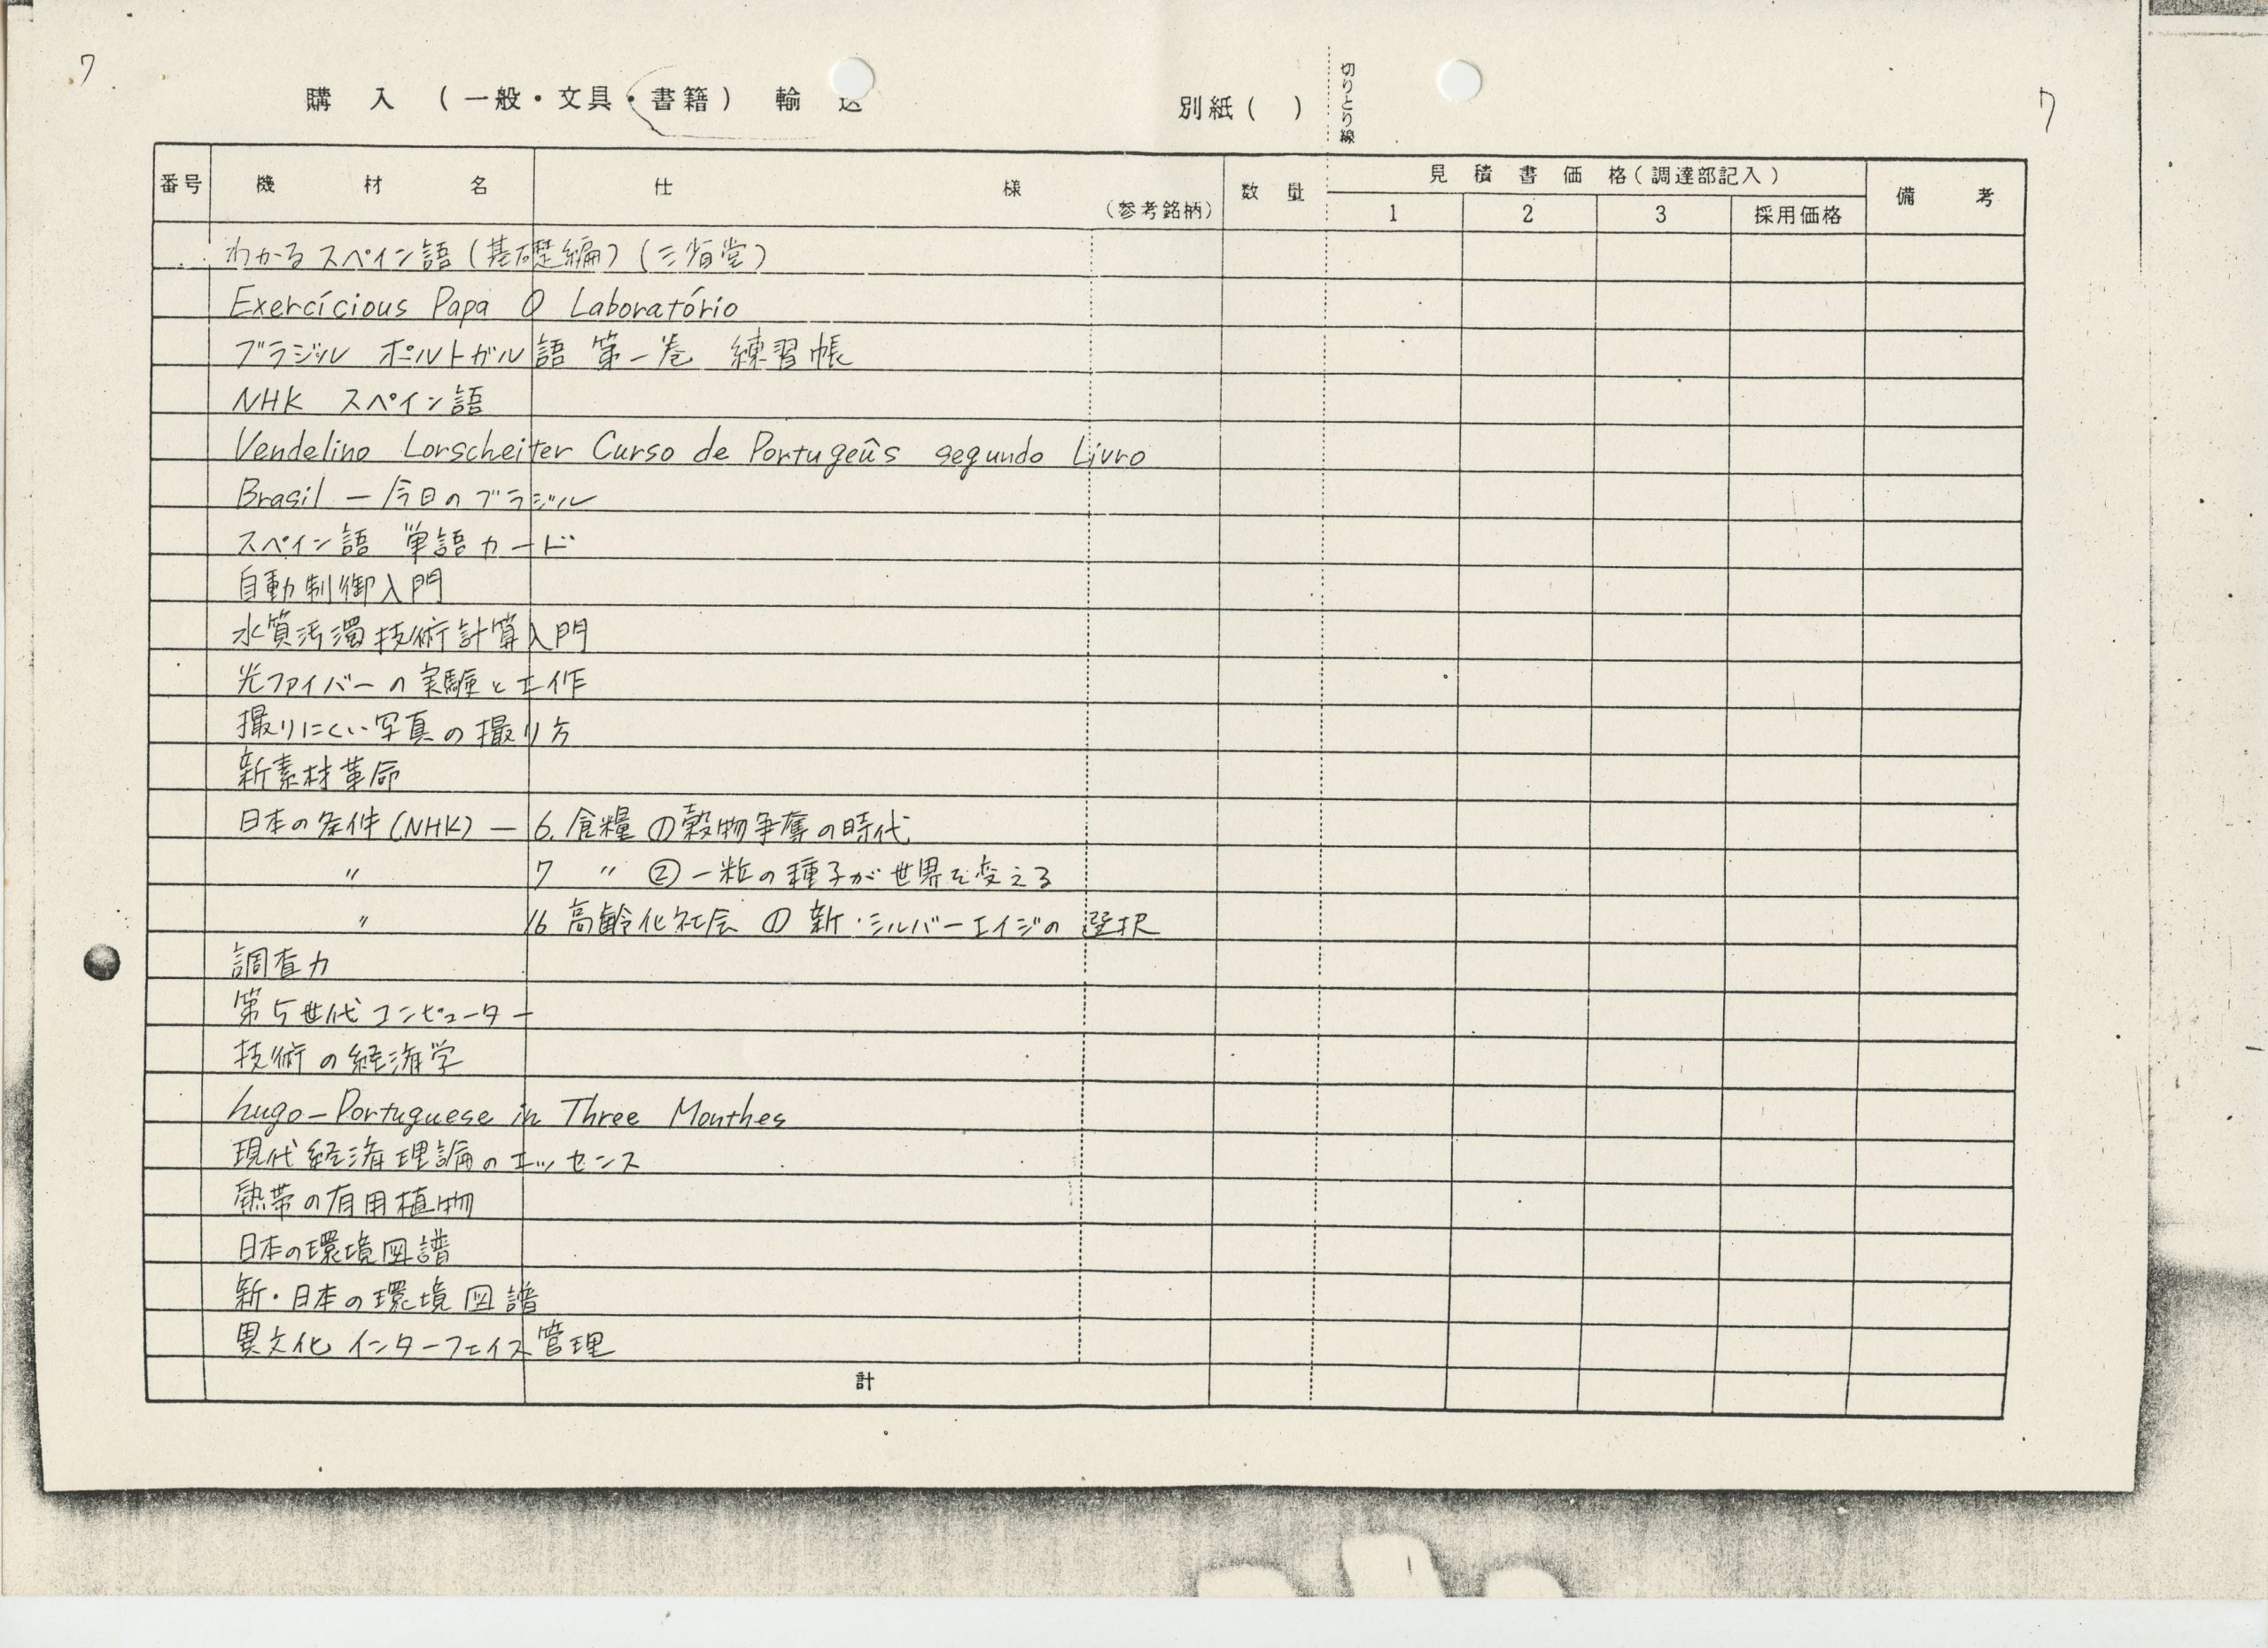 7
購入（一般・文具・書籍）輸送
別紙（　）
切りとり線
7
番号　機材名　仕様（参考銘柄）　数量　見積書価格（調達部記入）　備考
1　2　3　採用価格
わかるスペイン語（基礎編）（三省堂）
Exercícious Papa O Laboratório
ブラジル ポルトガル語 第一巻 練習帳
NHK スペイン語
Vendelino Lorscheiter Curso de Portugeûs segundo Livro
Brasil — 今日のブラジル
スペイン語 単語カード
自動制御入門
水質汚濁技術計算入門
光ファイバーの実験と工作
撮りにくい写真の撮り方
新素材革命
日本の条件（NHK）— 6. 食糧 ①穀物争奪の時代
〃　7　〃　② 一粒の種子が世界を変える
〃　16 高齢化社会 ① 新・シルバーエイジの選択
調査力
第5世代コンピューター
技術の経済学
hugo – Portuguese in Three Monthes
現代経済理論のエッセンス
熱帯の有用植物
日本の環境図譜
新・日本の環境図譜
異文化インターフェイス管理
計